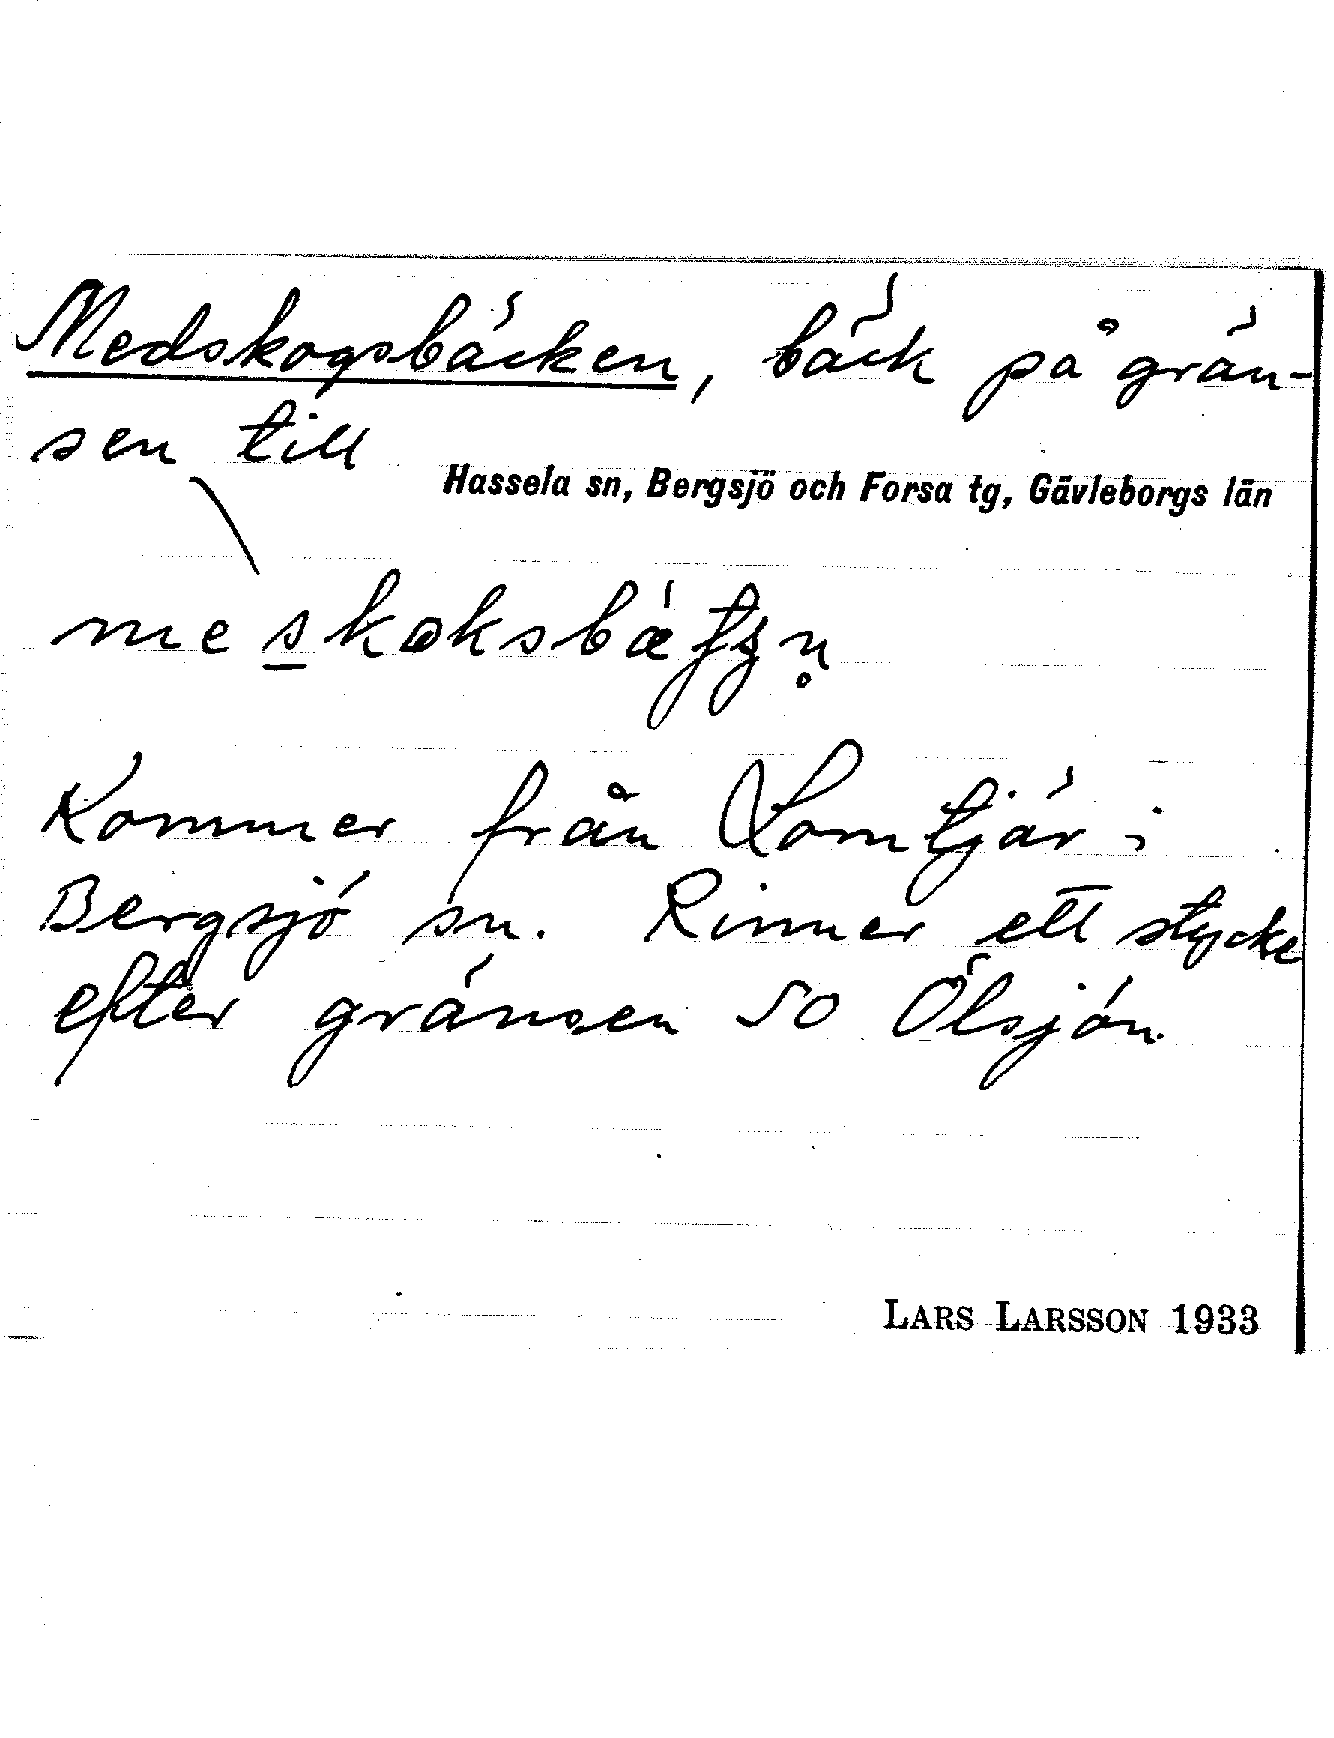 Medskogsbäcken, bäck på grän-
sen till
Hassela sn, Bergsjö och Forsa tg, Gävleborgs län
Kommer från Lomtjär i
Bergsjö sn. Rinner ett stycke
efter gränsen SO Ölsjön.
LARS LARSSON 1933